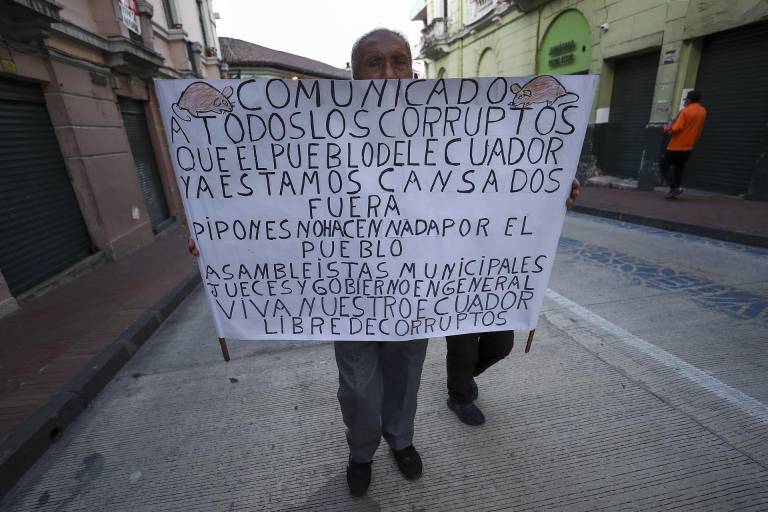 COMUNICADO
A TODOS LOS CORRUPTOS
QUE EL PUEBLO DEL ECUADOR
YA ESTAMOS CANSADOS
FUERA
PIPONES NO HACEN NADA POR EL
PUEBLO
ASAMBLEISTAS MUNICIPALES
JUECES Y GOBIERNO EN GENERAL
VIVA NUESTRO ECUADOR
LIBRE DE CORRUPTOS